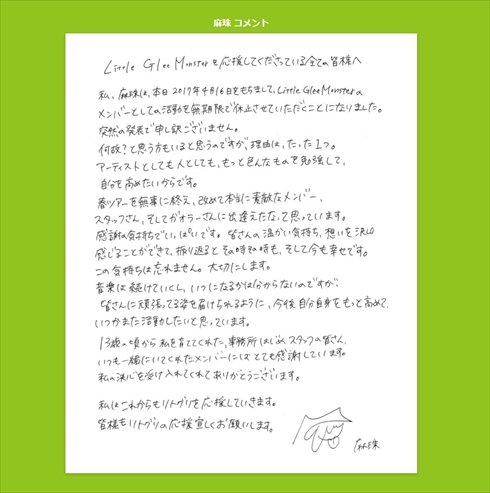 麻珠 コメント
Little Glee Monsterを応援してくださっている全ての皆様へ
私、麻珠は、本日2017年4月16日をもちまして、Little Glee Monsterの
メンバーとしての活動を無期限で休止させていただくことになりました。
突然の発表で申し訳ございません。
何故?と思う方もいると思うのですが、理由は、たった1つ。
アーティストとしても人としても、もっと色んなものを勉強して、
自分を高めたいからです。
春ツアーを無事に終え、改めて本当に素敵なメンバー、
スタッフさん、そしてガオラーさんに出逢えたなって思っています。
感謝の気持ちでいっぱいです。皆さんの温かい気持ち、想いを沢山
感じることができて、振り返るとその時その時も、そして今も幸せです。
この気持ちは忘れません。大切にします。
音楽は続けていくし、いつになるかは分からないのですが、
皆さんに頑張ってる姿を届けられるように、今後自分自身をもっと高めて、
いつかまた活動したいと思っています。
13歳の頃から私を育ててくれた、事務所はじめ、スタッフの皆さん、
いつも一緒にいてくれたメンバーにはとても感謝しています。
私の決心を受け入れてくれてありがとうございます。
私はこれからもリトグリを応援していきます。
皆様もリトグリの応援宜しくお願いします。
麻珠